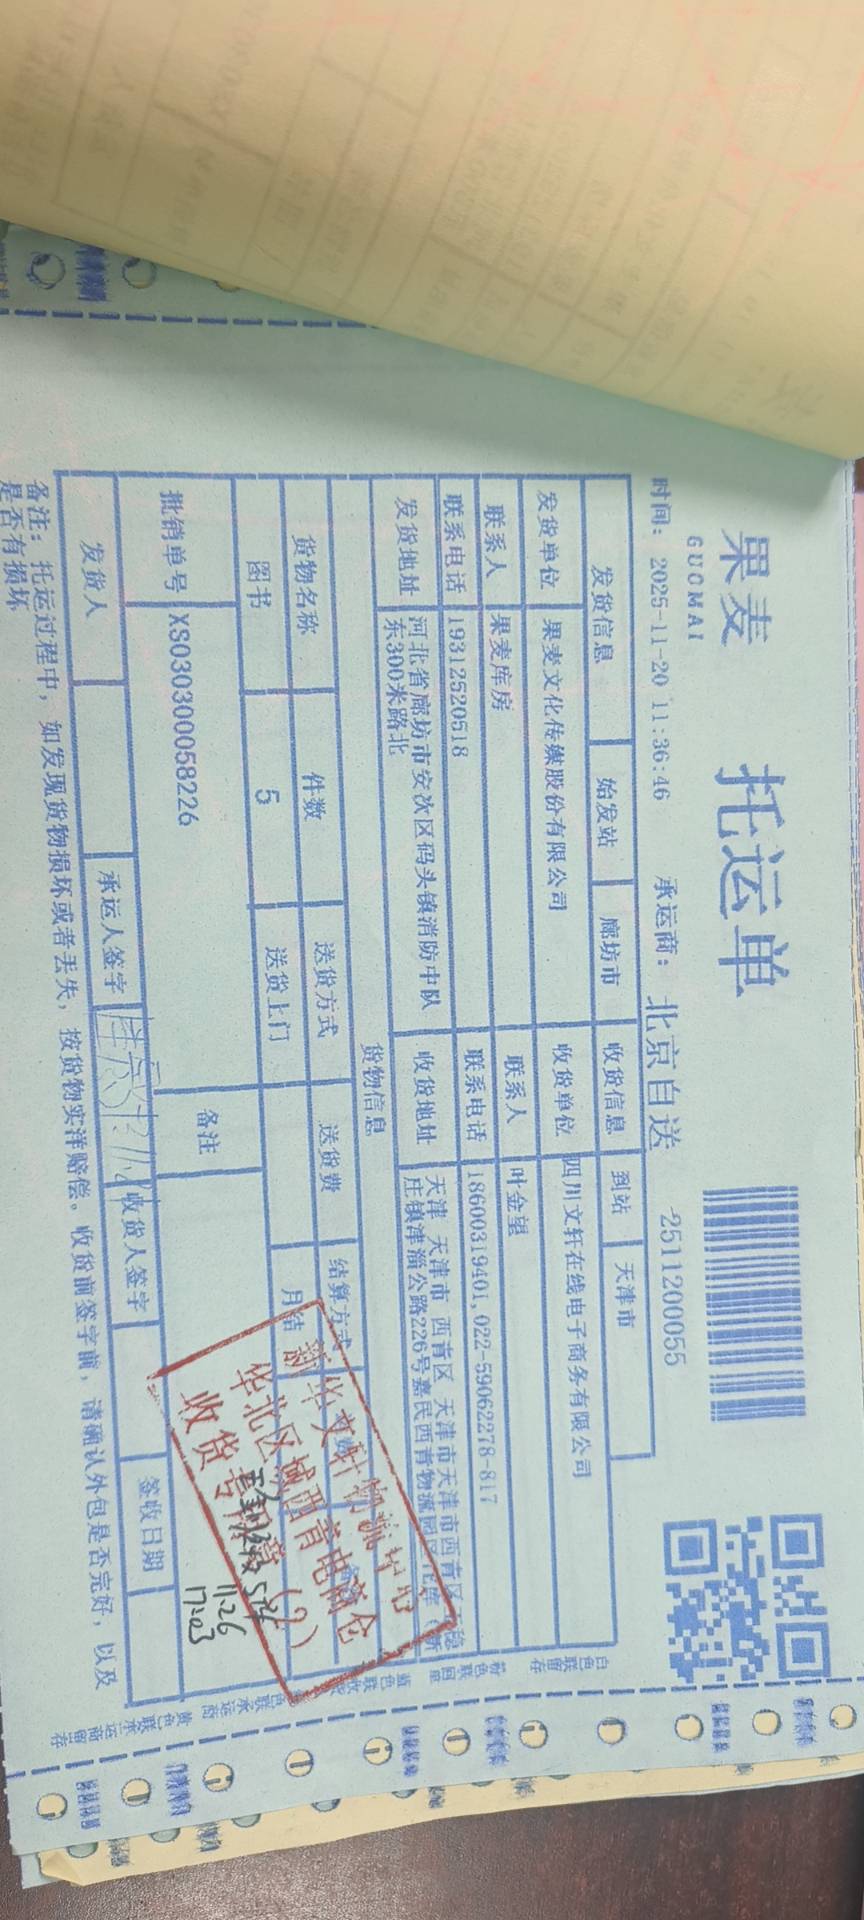 果麦
GUOMAI
托运单
时间： 2025-11-20 11:36:46 承运商： 北京自送 -2511200055
发货信息 始发站 廊坊市 收货信息 到站 天津市
发货单位 果麦文化传媒股份有限公司 收货单位 四川文轩在线电子商务有限公司
联系人 果麦库房 联系人 叶金望
联系电话 19312520518 联系电话 18600319401, 022-59062278-817
发货地址 河北省廊坊市安次区码头镇消防中队东300米路北 收货地址 天津 天津市 西青区 天津市天津市西青区
庄镇津淄公路226号嘉民西青物流园区
货物信息
货物名称 件数 送货方式 送货费 结算方式
图书 5 送货上门 月结
批销单号 XS030300058226 备注
新华文轩物流
华北区域西青电商仓
收货专用章（2）
11.26
17:03
发货人 承运人签字 收货人签字 签收日期
备注： 托运过程中，如发现货物损坏或者丢失，按货物实洋赔偿。收货前签字前，请确认外包是否完好，以及
是否有损坏
白色联留存
粉色联回
蓝色联收
色联承运商
黄色联承运商留存